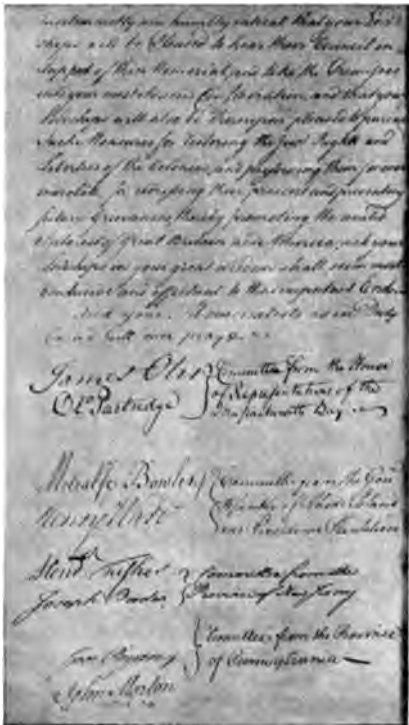 and humbly intreat that your Lord
ships will be Pleased to hear their Council in
Support of this Memorial, and take the Premises
into your most serious Consideration, and that your
Lordships will also be thereupon pleased to pursue
such Measures for restoring the just Rights and
Liberties of the Colonies, and preserving them for ever
inviolate for redressing their present and preventing
future Grievances thereby promoting the united
Interest of Great Britain and America, as to your
Lordships in your great wisdom shall seem most
conducive and effectual to that important End.
And your Memorialists as in Duty
bound will ever pray &c
James Otis
Committee from the House
of Representatives of the
Massachusetts Bay
Ol. Partridge
Metcalfe Bowler
Henry Ward
Committee from the
of Rhode Island
and Providence Plantation
Hendk. Fisher
Joseph Borden
Committee from the
Province of New Jersey
Committee from the Province
of Pennsylvania
John Morton